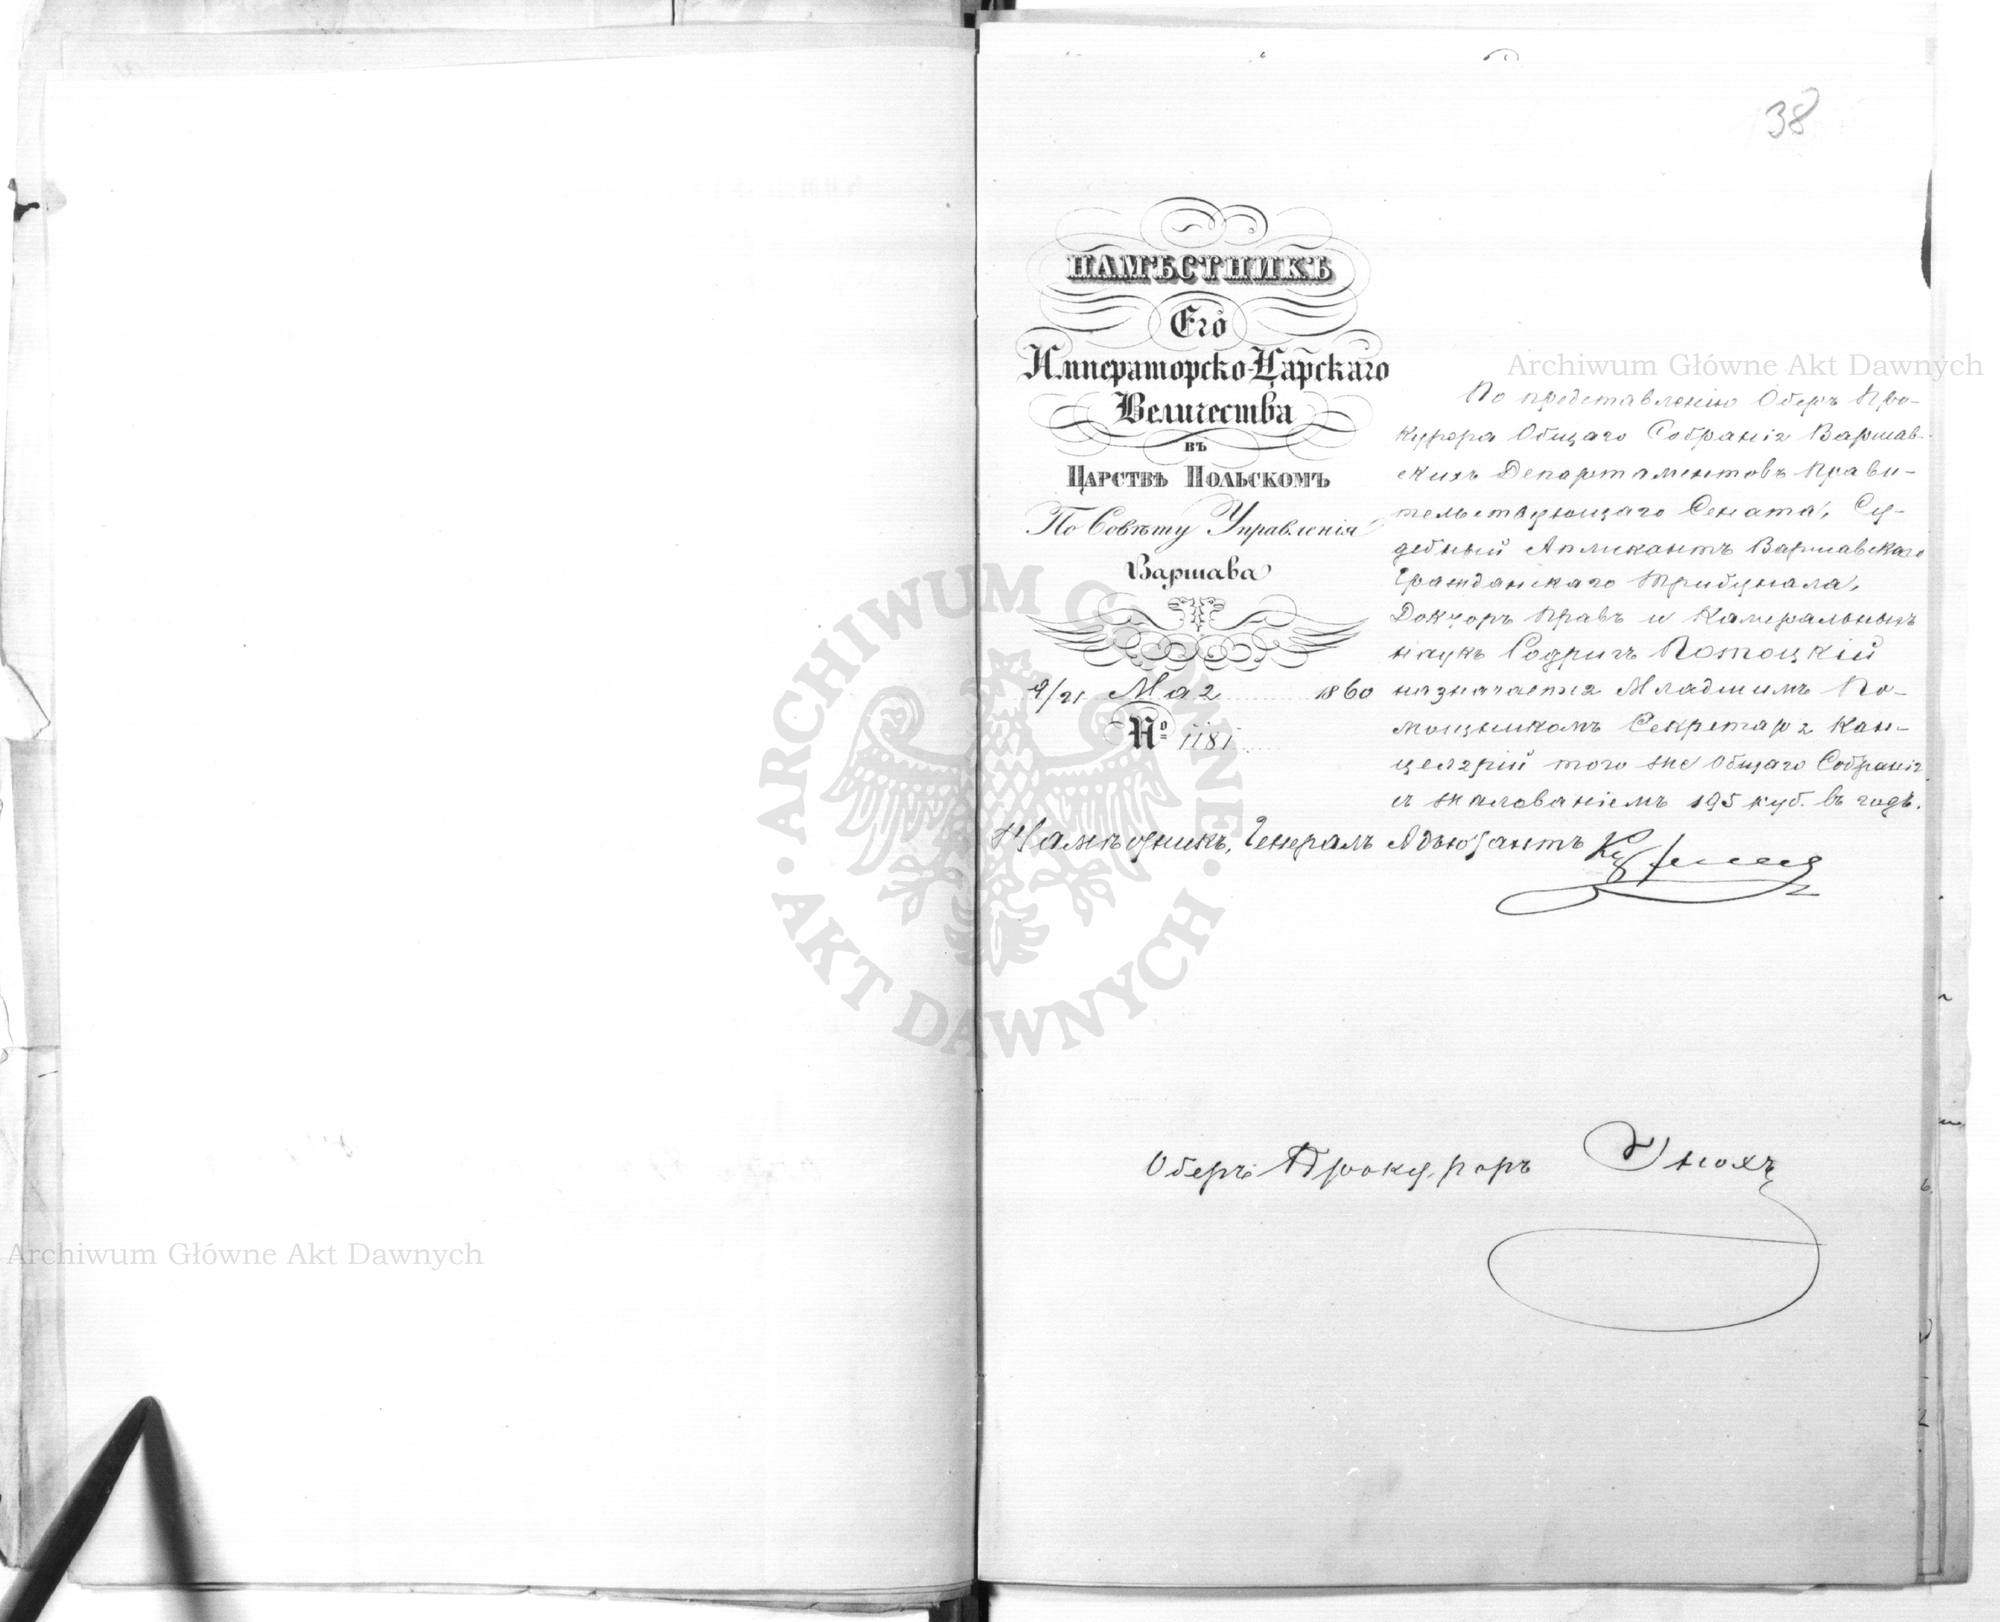 38
НАМѢСТНИКЪ
Его
Императорско-Царскаго
Величества
въ
Царствѣ Польскомъ
По Совѣту Управленія
Варшава
9/21 Мая 1860
№ 1181
Archiwum Główne Akt Dawnych
По представленію Оберъ Про-
курора Общаго Собранія Варшав-
скихъ Департаментовъ Прави-
тельствующаго Сената, Су-
дебный Апликантъ Варшавскаго
Гражданскаго Трибунала,
Докторъ Правъ и Камеральныхъ
наукъ Родригъ Потоцкій
назначается Младшимъ По-
мощникомъ Секретаря Кан-
целяріи того же Общаго Собранія
съ жалованіемъ 195 руб. въ годъ.
Намѣстникъ, Генералъ Адъютантъ
ARCHIWUM GŁÓWNE AKT DAWNYCH
Оберъ Прокуроръ Энохъ
Archiwum Główne Akt Dawnych